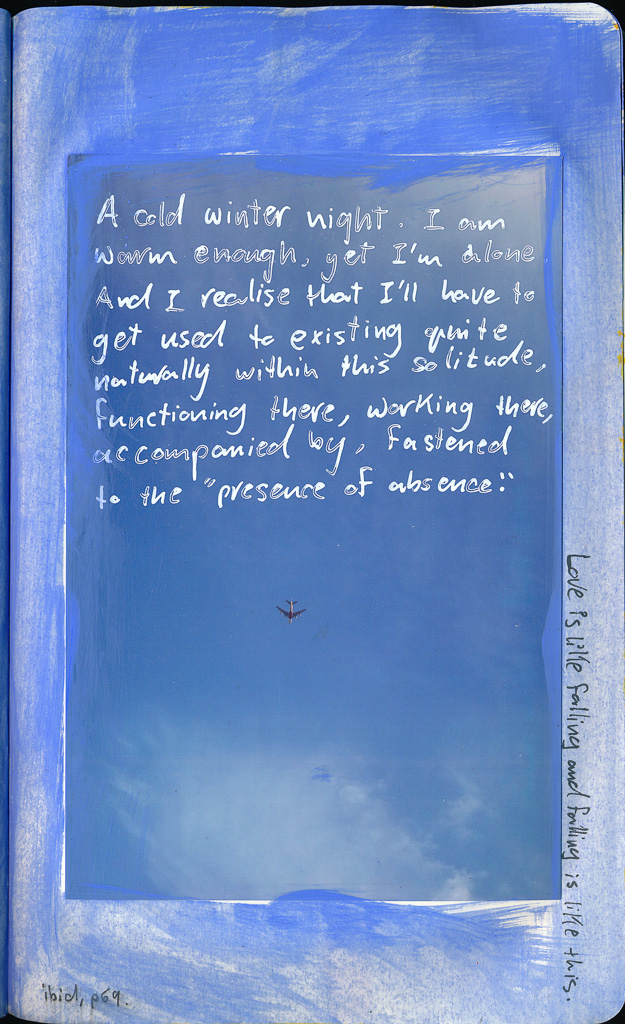 A cold winter night. I am
warm enough, yet I'm alone.
And I realise that I'll have to
get used to existing quite
naturally within this solitude,
functioning there, working there,
accompanied by, fastened
to the "presence of absence."
Love is like falling and falling is like this.
ibid, p69.